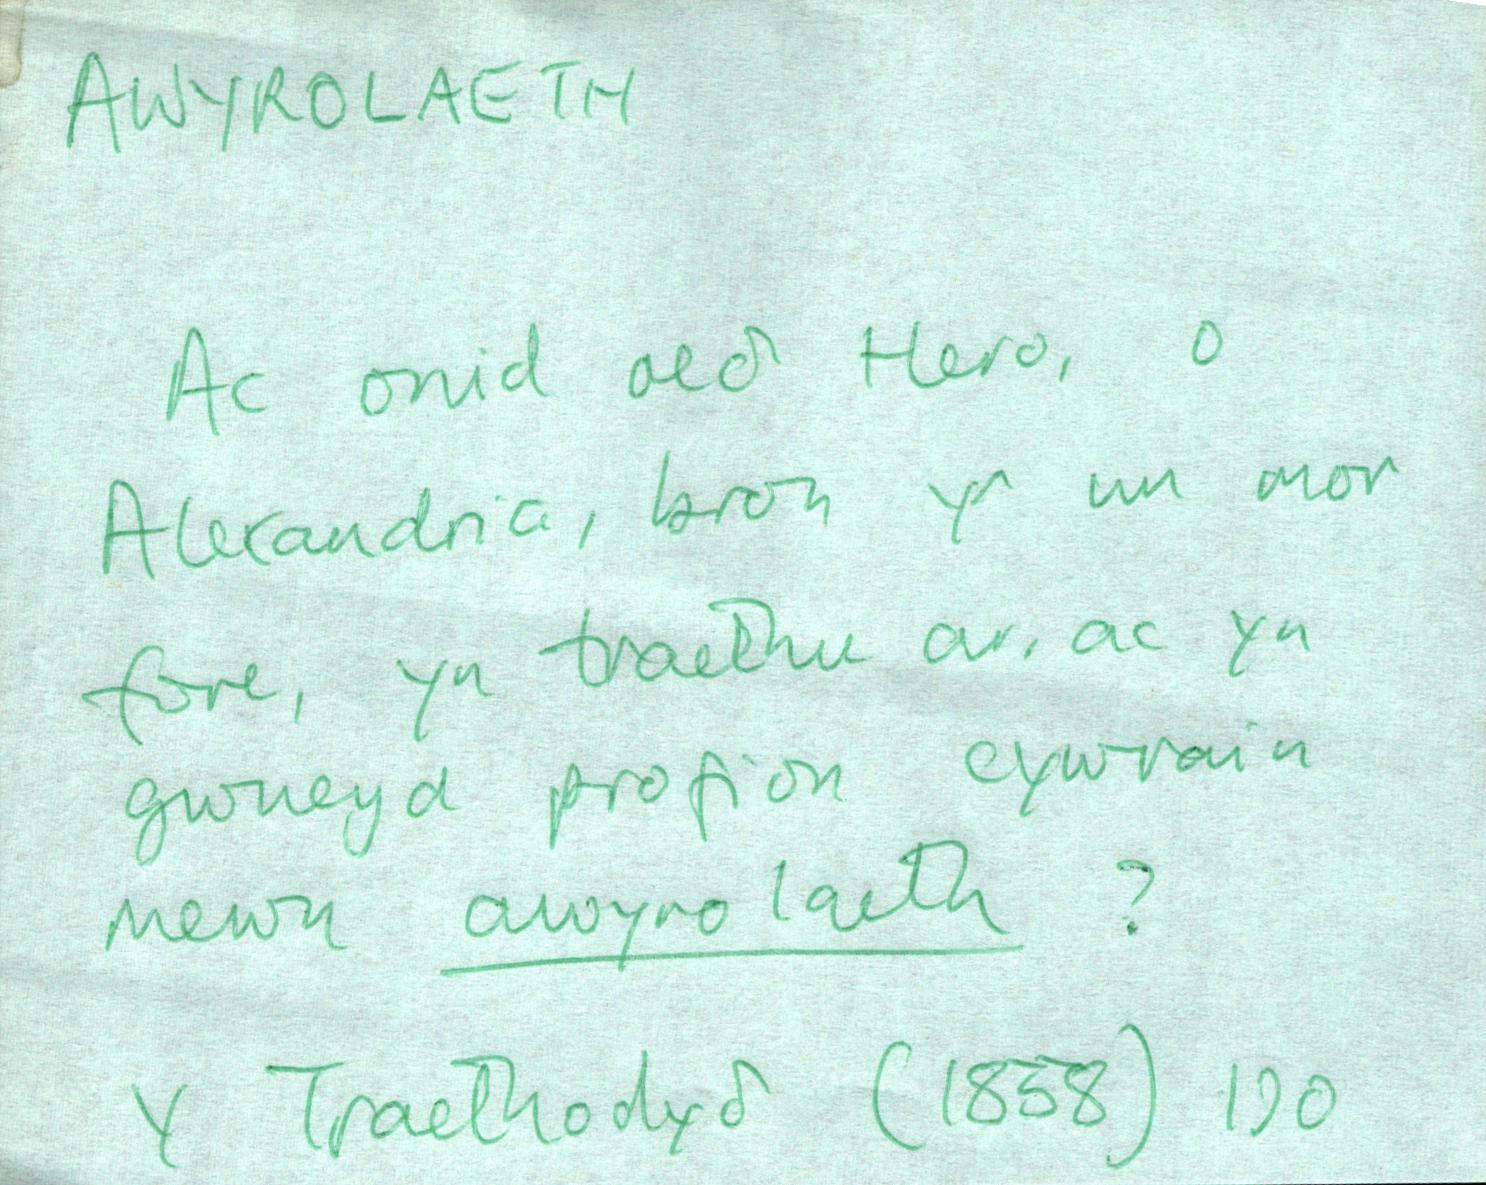 AWYROLAETH
Ac onid oeð Hero, o
Alexandria, bron yr un mor
fore, yn traethu ar, ac yn
gwneyd profion cywrain
mewn awyrolaeth ?
Y Traethodyð (1858)